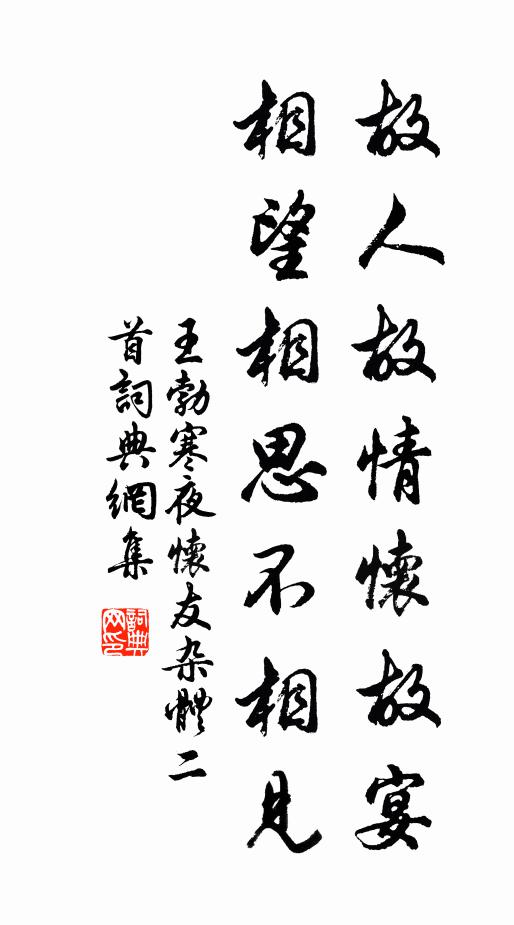 故人故情懷故宴
相望相思不相見
王勃寒夜懷友杂體二
首詞典網集
詞典网印